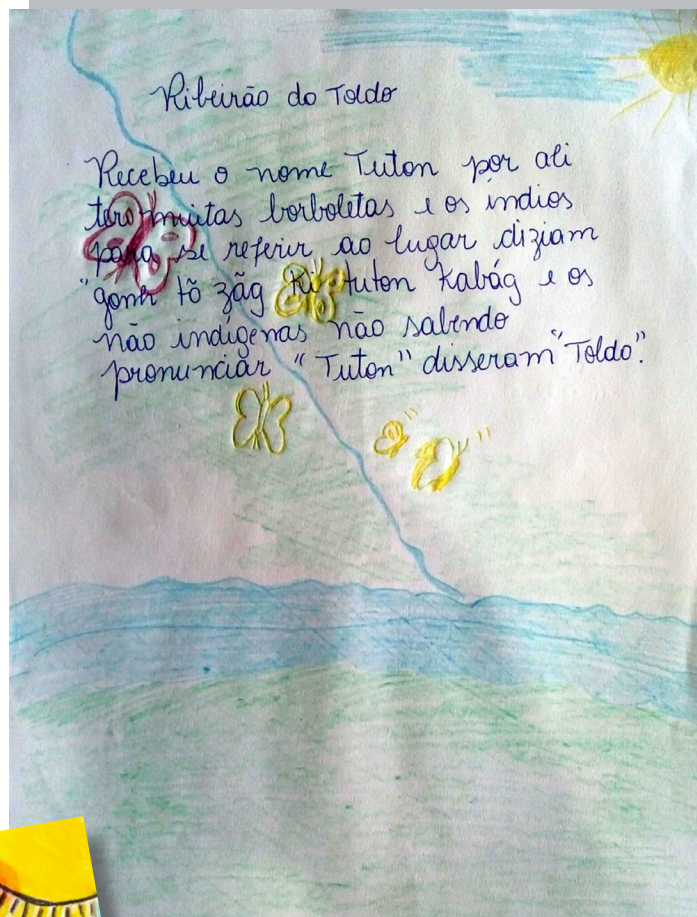 Ribeirão do Toldo
Recebeu o nome Tuton por ali
ter muitas borboletas e os índios
para se referir ao lugar diziam
"gonh tõ zãg ki tuton Kabág e os
não indígenas não sabendo
pronunciar "Tuton" disseram "Toldo".